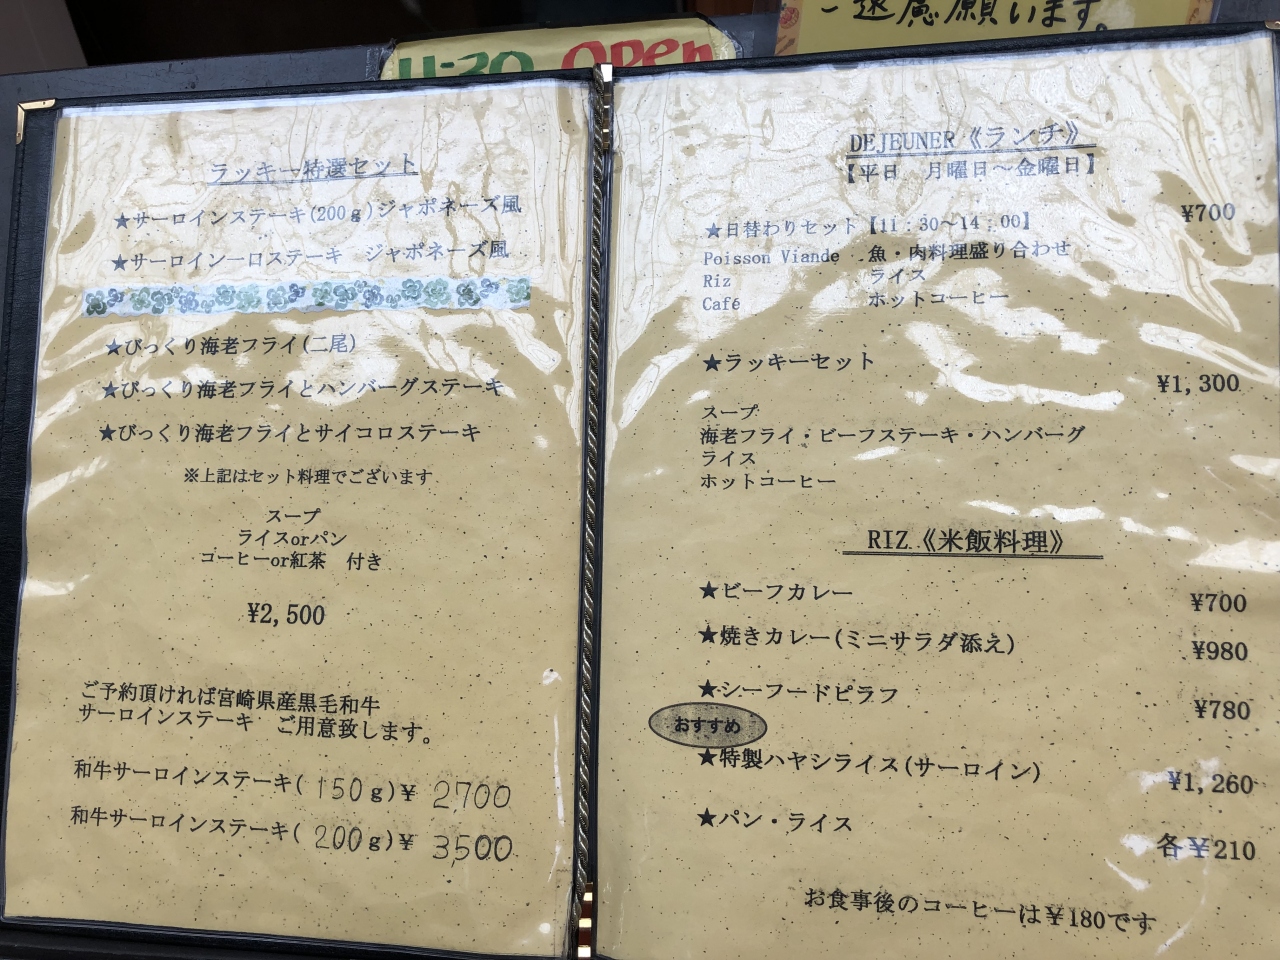 ご遠慮願います。
11:30 Open
ラッキー特選セット
★サーロインステーキ(200g)ジャポネーズ風
★サーロイン一口ステーキ ジャポネーズ風
★びっくり海老フライ(二尾)
★びっくり海老フライとハンバーグステーキ
★びっくり海老フライとサイコロステーキ
※上記はセット料理でございます
スープ
ライスorパン
コーヒーor紅茶 付き
¥2,500
ご予約頂ければ宮崎県産黒毛和牛
サーロインステーキ ご用意致します。
和牛サーロインステーキ(150g)¥ 2700
和牛サーロインステーキ(200g)¥ 3,500
DEJEUNER《ランチ》
【平日 月曜日～金曜日】
★日替わりセット【11:30～14:00】 ¥700
Poisson Viande 魚・肉料理盛り合わせ
Riz ライス
Café ホットコーヒー
★ラッキーセット ¥1,300
スープ
海老フライ・ビーフステーキ・ハンバーグ
ライス
ホットコーヒー
RIZ《米飯料理》
★ビーフカレー ¥700
★焼きカレー(ミニサラダ添え) ¥980
★シーフードピラフ ¥780
おすすめ
★特製ハヤシライス(サーロイン) ¥1,260
★パン・ライス 各¥210
お食事後のコーヒーは¥180です